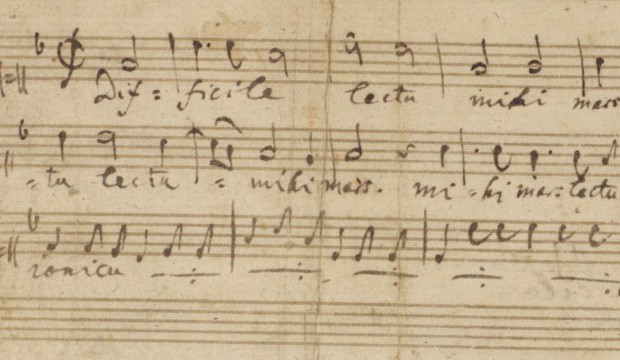 Dif = ficile lectu mihi mars
= tu lectu = mihi mars. mi = hi mars lectu
ionicu